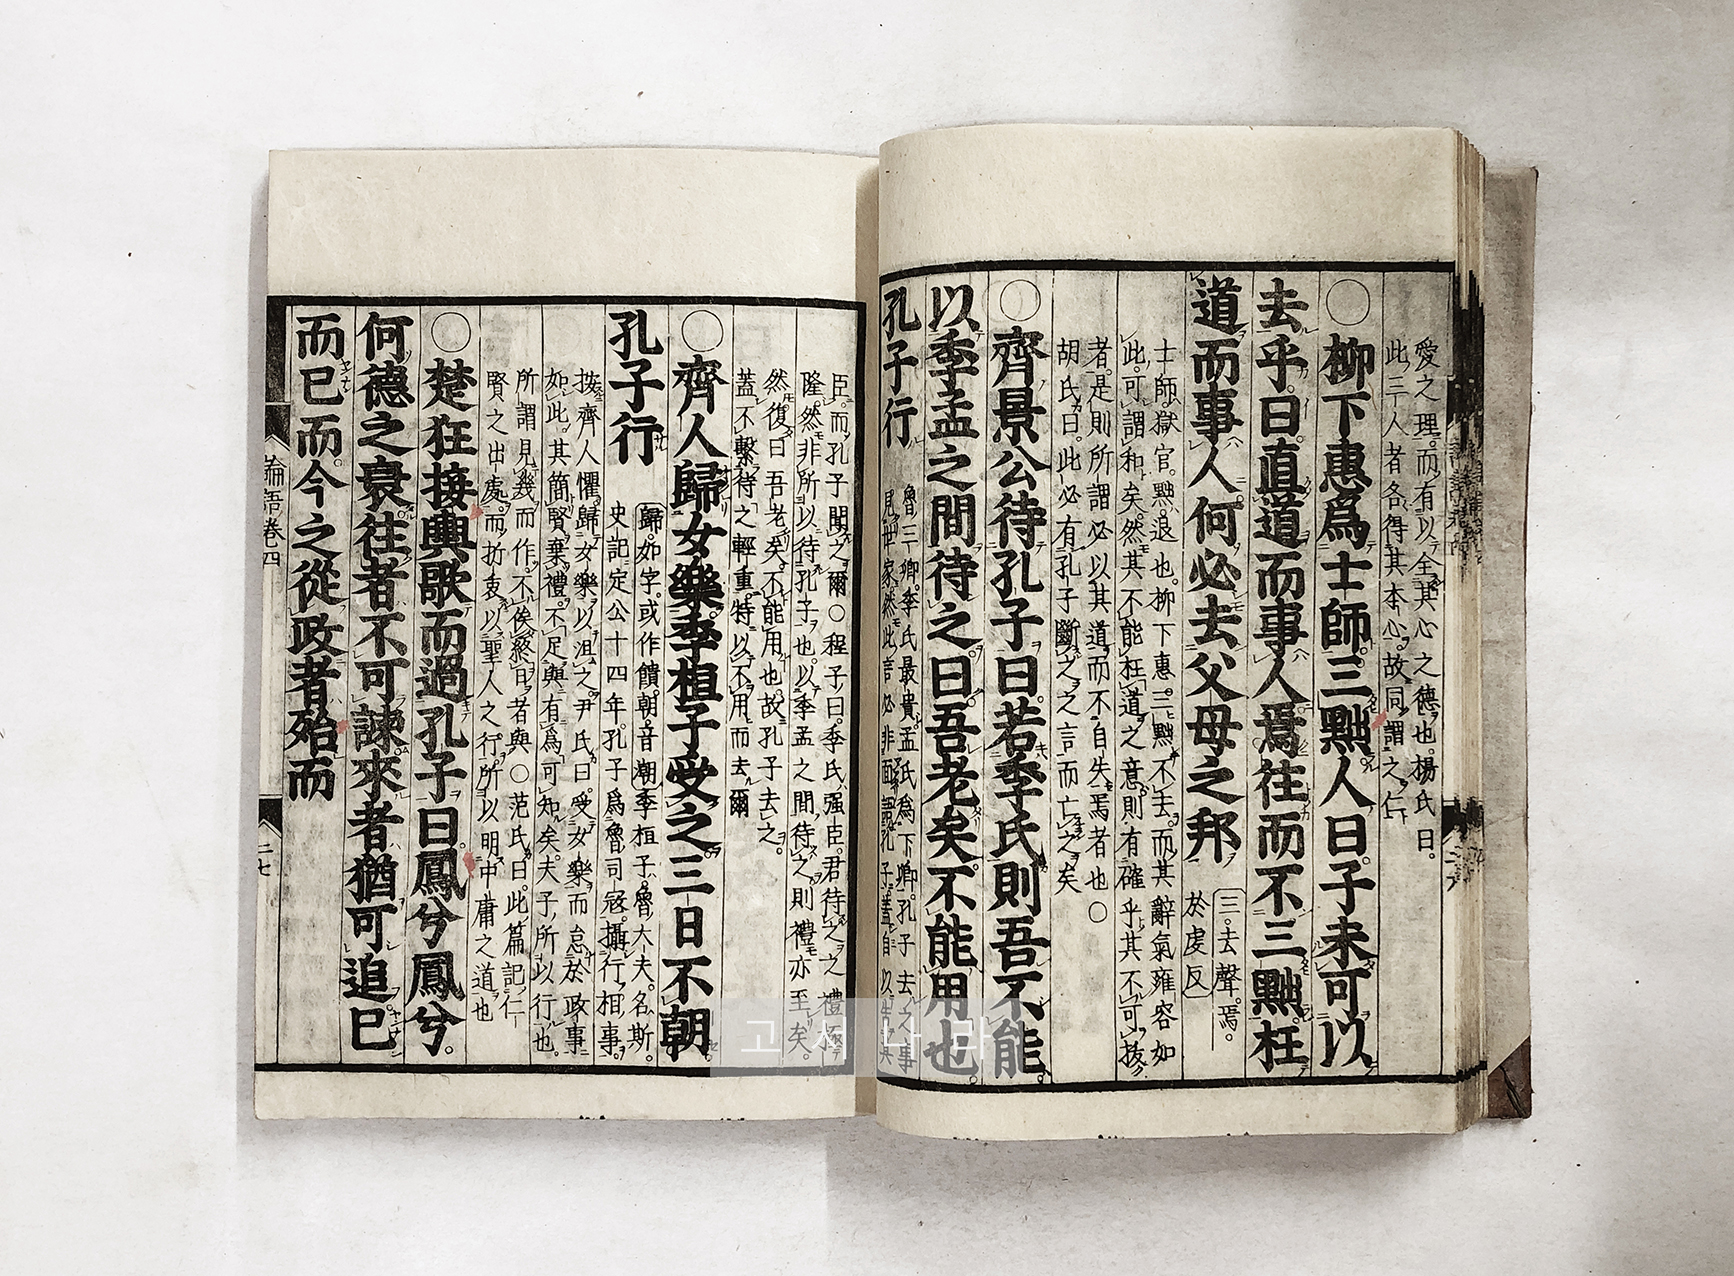 愛之理。而有以全其心之德也。楊氏曰。
此三人者各得其本心。故同謂之仁
〇柳下惠爲士師。三黜。人曰子未可以
去乎。曰。直道而事人。焉往而不三黜。枉
道而事人。何必去父母之邦
三。去聲。焉。
於虔反
士師。獄官。黜。退也。柳下惠三黜不去。而其辭氣雍容如
此。可謂和矣。然其不能枉道之意。則有確乎其不可拔
者。是則所謂必以其道而不自失焉者也〇
胡氏曰。此必有孔子斷之之言而亡之矣
〇齊景公待孔子曰。若季氏則吾不能。
以季孟之間待之。曰。吾老矣。不能用也。
孔子行
魯三卿。季氏最貴。孟氏爲下卿。孔子去之。事
見世家。然此言必非面語孔子。蓋自以告其
臣。而孔子聞之爾〇程子曰。季氏強臣。君待之之禮極
隆。然非所以待孔子也。以季孟之間待之。則禮亦至矣。
然復曰吾老矣。不能用也。故孔子去之。
蓋不繫待之輕重。特以不用而去爾
〇齊人歸女樂。季桓子受之。三日不朝。
孔子行
歸。如字。或作饋。朝。音潮。季桓子。魯大夫。名斯。
史記。定公十四年。孔子爲魯司寇。攝行相事。
齊人懼。歸女樂以沮之。尹氏曰。受女樂而怠於政事
如此。其簡賢棄禮。不足與有爲可知矣。夫子所以行也。
所謂見幾而作。不俟終日者與〇范氏曰。此篇記仁
賢之出處。而折衷以聖人之行。所以明中庸之道也
〇楚狂接輿歌而過孔子曰。鳳兮鳳兮。
何德之衰。往者不可諫。來者猶可追。已
而已而。今之從政者殆而
論語卷四
二七
고서나라